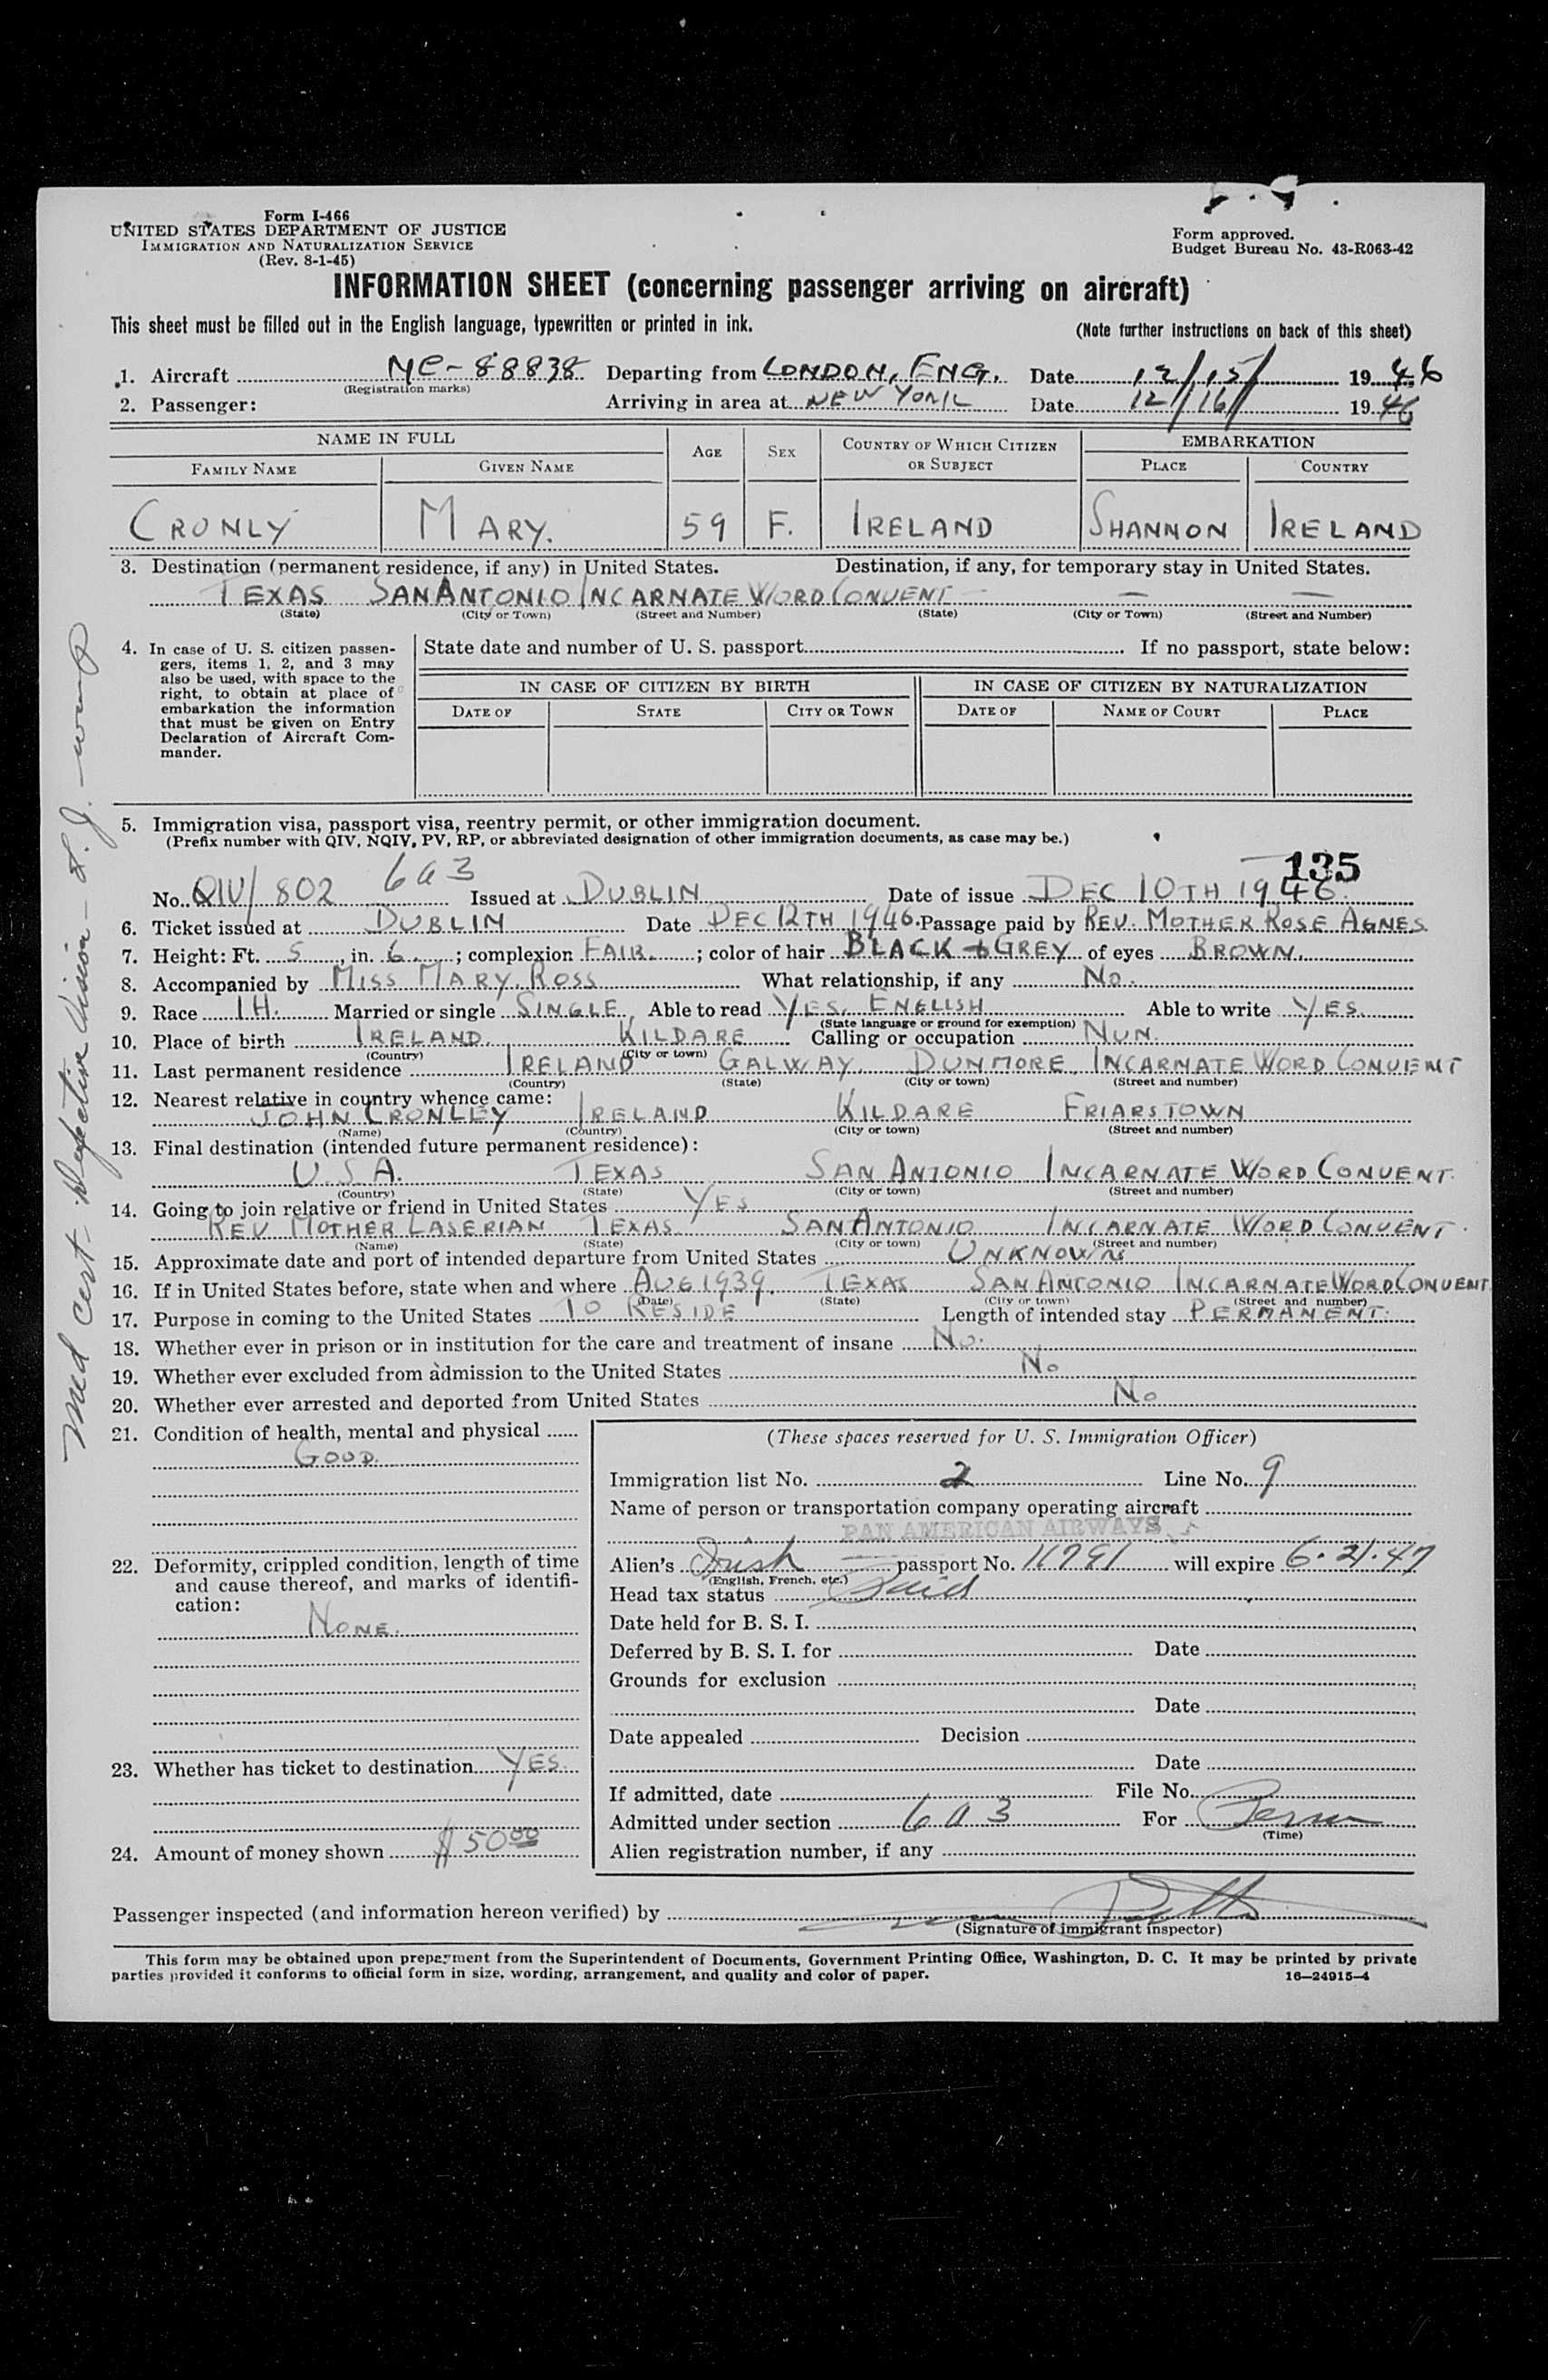 Form I-466
UNITED STATES DEPARTMENT OF JUSTICE
IMMIGRATION AND NATURALIZATION SERVICE
(Rev. 8-1-45)
Form approved.
Budget Bureau No. 43-R063-42
INFORMATION SHEET (concerning passenger arriving on aircraft)
This sheet must be filled out in the English language, typewritten or printed in ink.
(Note further instructions on back of this sheet)
1. Aircraft NC-88838 Departing from LONDON, ENG. Date 12/15/ 1946
(Registration marks)
2. Passenger: Arriving in area at NEW YORK Date 12/16/ 1946
NAME IN FULL AGE SEX COUNTRY OF WHICH CITIZEN OR SUBJECT EMBARKATION
FAMILY NAME GIVEN NAME PLACE COUNTRY
CRONLY MARY. 59 F. IRELAND SHANNON IRELAND
3. Destination (permanent residence, if any) in United States. Destination, if any, for temporary stay in United States.
TEXAS SAN ANTONIO INCARNATE WORD CONVENT — — —
(State) (City or Town) (Street and Number) (State) (City or Town) (Street and Number)
4. In case of U. S. citizen passen-
gers, items 1, 2, and 3 may
also be used, with space to the
right, to obtain at place of
embarkation the information
that must be given on Entry
Declaration of Aircraft Com-
mander.
State date and number of U. S. passport If no passport, state below:
IN CASE OF CITIZEN BY BIRTH IN CASE OF CITIZEN BY NATURALIZATION
DATE OF STATE CITY OR TOWN DATE OF NAME OF COURT PLACE
5. Immigration visa, passport visa, reentry permit, or other immigration document.
(Prefix number with QIV, NQIV, PV, RP, or abbreviated designation of other immigration documents, as case may be.)
135
6a3
No. QIV/802 Issued at DUBLIN Date of issue DEC 10TH 1946.
6. Ticket issued at DUBLIN Date DEC 12TH 1946. Passage paid by REV. MOTHER ROSE AGNES
7. Height: Ft. 5, in. 6; complexion FAIR.; color of hair BLACK + GREY of eyes BROWN.
8. Accompanied by MISS MARY. ROSS What relationship, if any No.
9. Race IH. Married or single SINGLE Able to read YES, ENGLISH Able to write YES.
(State language or ground for exemption)
10. Place of birth IRELAND. KILDARE Calling or occupation NUN.
(Country) (City or town)
11. Last permanent residence IRELAND GALWAY. DUNMORE INCARNATE WORD CONVENT
(Country) (State) (City or town) (Street and number)
12. Nearest relative in country whence came:
JOHN CRONLEY IRELAND KILDARE FRIARSTOWN
(Name) (Country) (City or town) (Street and number)
13. Final destination (intended future permanent residence):
U.S.A. TEXAS SAN ANTONIO INCARNATE WORD CONVENT.
(Country) (State) (City or town) (Street and number)
14. Going to join relative or friend in United States YES
REV MOTHER LASERIAN TEXAS SAN ANTONIO INCARNATE WORD CONVENT.
(Name) (State) (City or town) (Street and number)
15. Approximate date and port of intended departure from United States UNKNOWN
16. If in United States before, state when and where AUG 1939. TEXAS SAN ANTONIO INCARNATE WORD CONVENT
(Date) (State) (City or town) (Street and number)
17. Purpose in coming to the United States TO RESIDE Length of intended stay PERMANENT.
18. Whether ever in prison or in institution for the care and treatment of insane No.
19. Whether ever excluded from admission to the United States No
20. Whether ever arrested and deported from United States No
21. Condition of health, mental and physical
GOOD.
22. Deformity, crippled condition, length of time
and cause thereof, and marks of identifi-
cation:
NONE.
23. Whether has ticket to destination YES.
24. Amount of money shown $50.00
(These spaces reserved for U. S. Immigration Officer)
Immigration list No. 2 Line No. 9
Name of person or transportation company operating aircraft
PAN AMERICAN AIRWAYS
Alien's Irish passport No. K7981 will expire 6.21.47
(English, French, etc.)
Head tax status Paid
Date held for B. S. I.
Deferred by B. S. I. for Date
Grounds for exclusion
Date
Date appealed Decision
Date
If admitted, date File No.
Admitted under section 6 a 3 For Perm
(Time)
Alien registration number, if any
Passenger inspected (and information hereon verified) by
(Signature of immigrant inspector)
This form may be obtained upon prepayment from the Superintendent of Documents, Government Printing Office, Washington, D. C. It may be printed by private
parties provided it conforms to official form in size, wording, arrangement, and quality and color of paper. 16—24915-4
Med cert Defective Vision